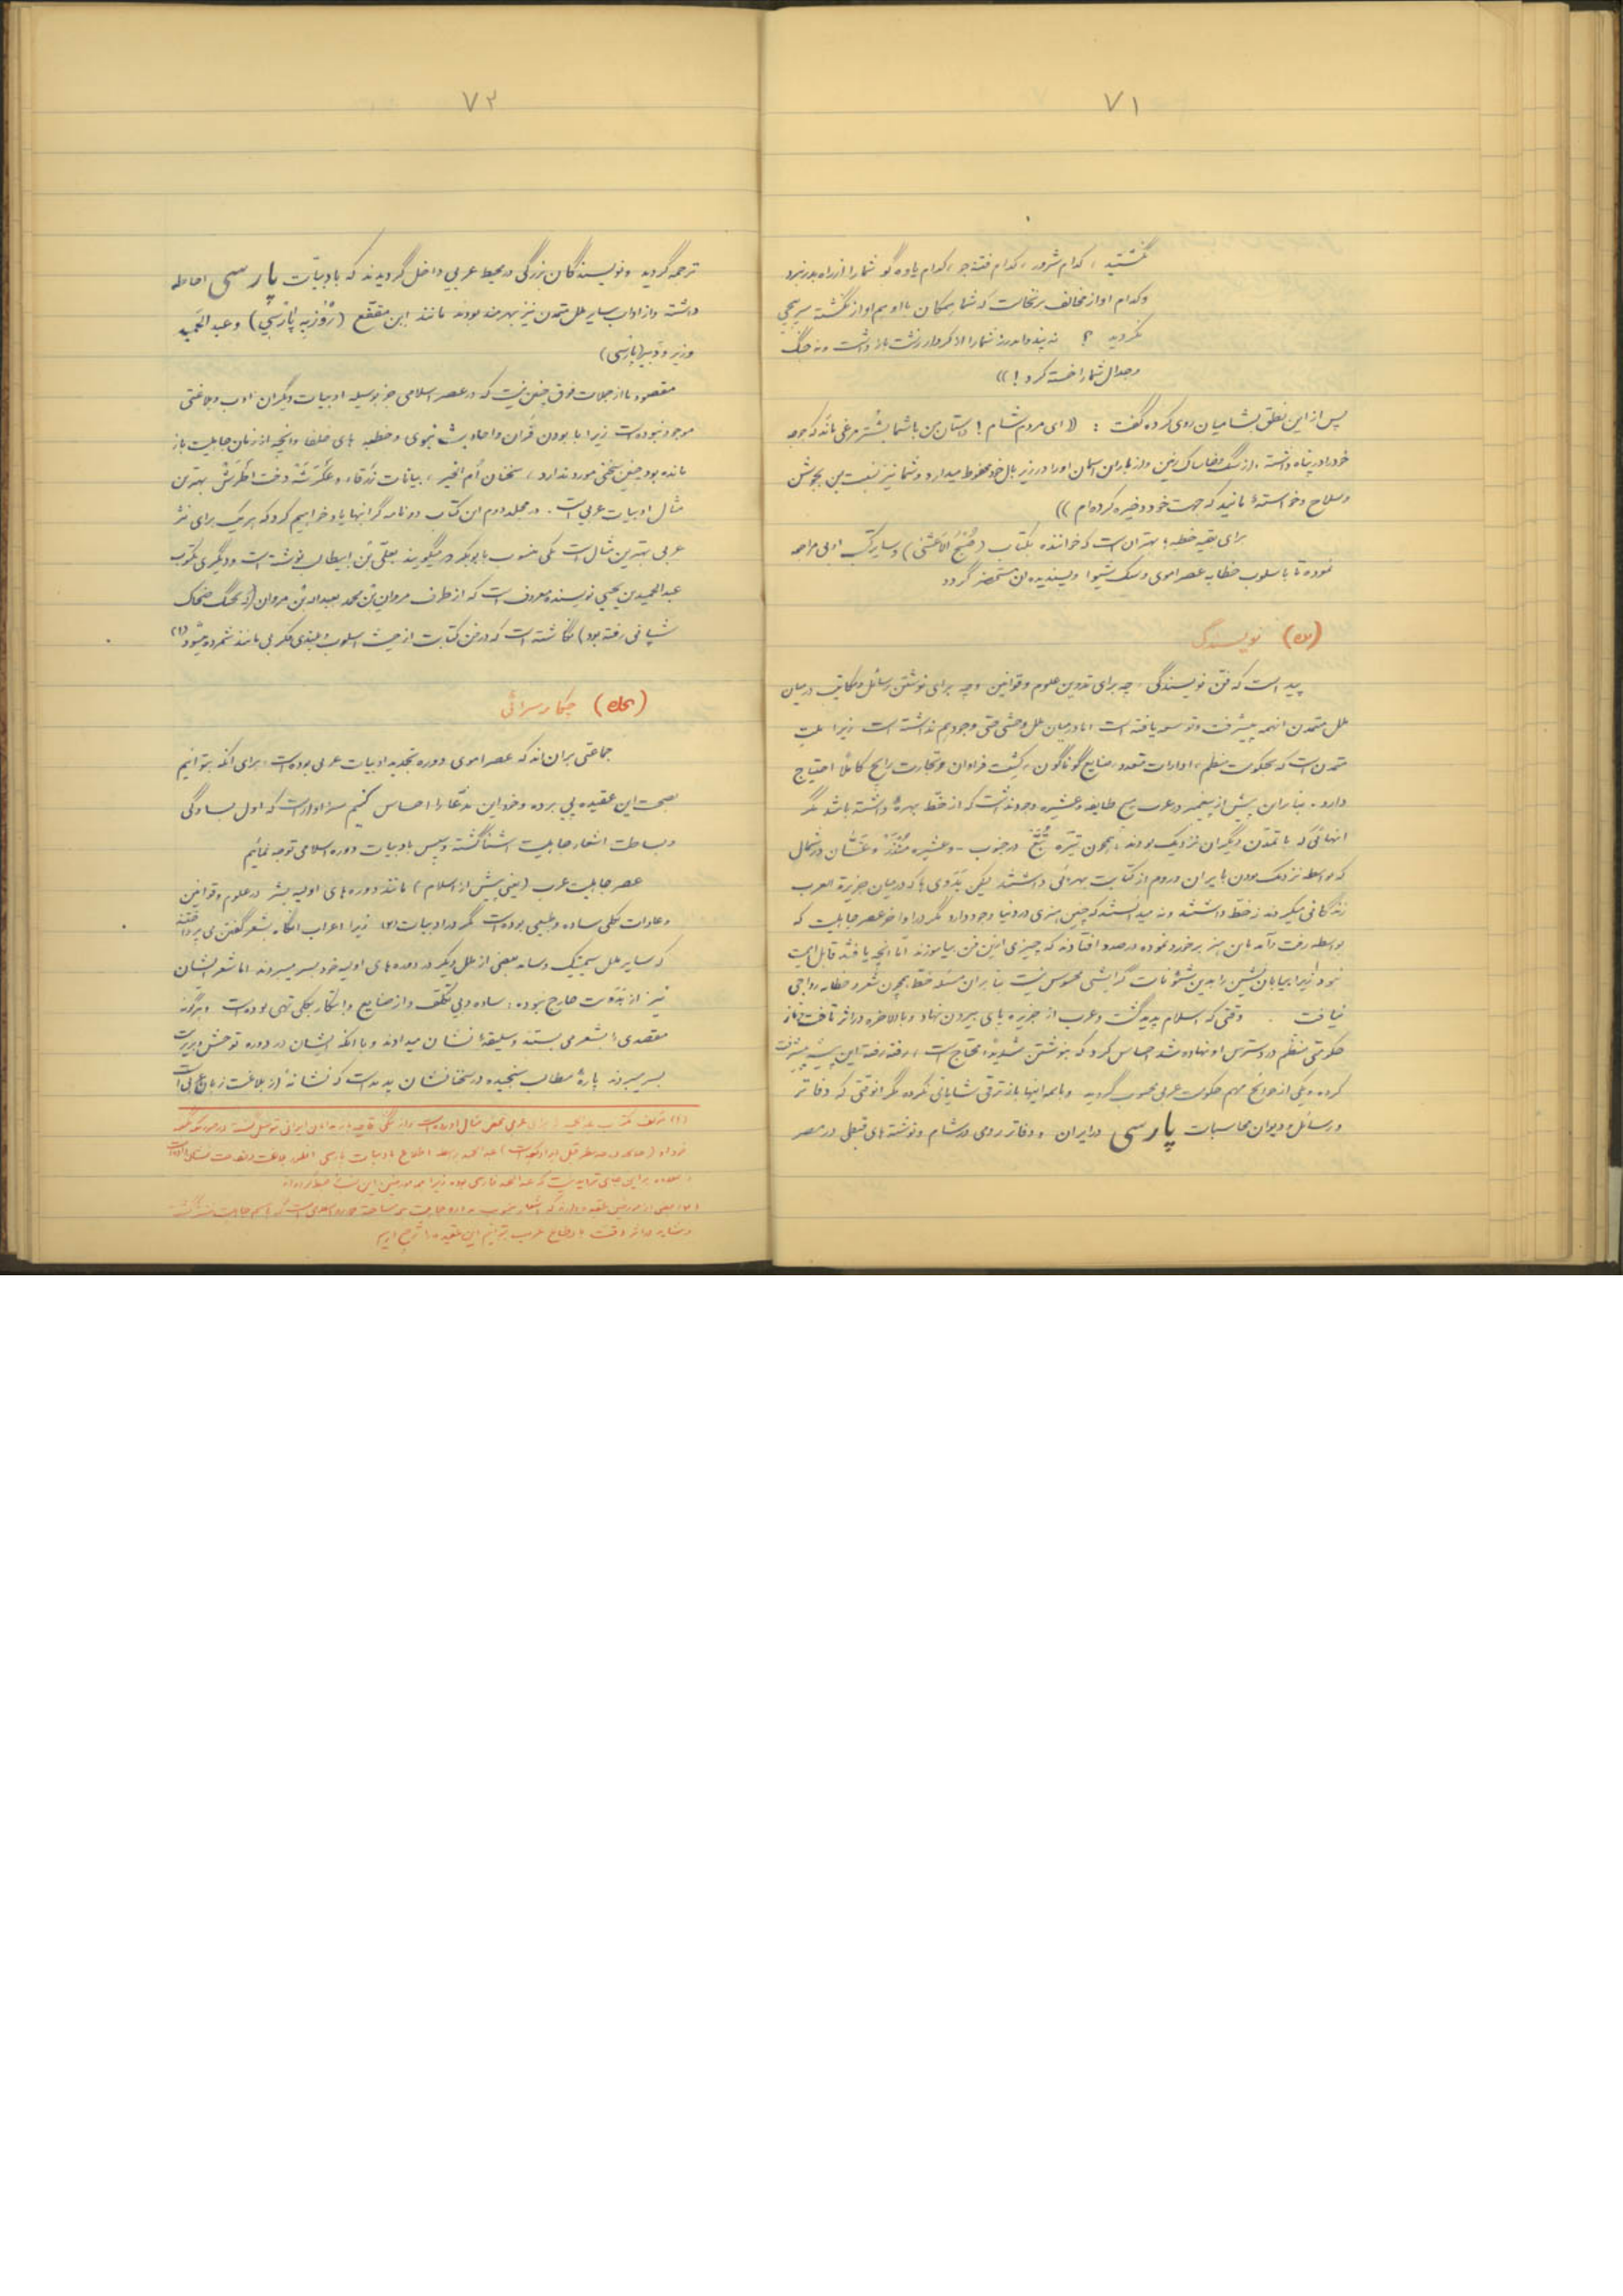 ۷۱
نگشتید ، کدام شرور ، کدام فتنه جو ، کدام یاوه گو شما را از راه بدر نبرد
و کدام اواز مخالف برنخاست که شما همگان با او هم اواز نگشته سرپیچی
نکردید ؟ نه پند و اندرز شما را از کردار زشت بازداشت و نه جنگ
و جدال شما را خسته کرد ! ))
پس از این نطق بشامیان روی کرده گفت : (( ای مردم شام ! داستان من با شما بشتر مرغی ماند که جوجه
خود را در پناه داشته ، از سنگ و خاشاک زمین و از باران اسمان او را در زیر بال خود محفوظ میدارد و شما نیز نسبت بمن بجوشن
و سلاح و خواستهٔ مانید که جهت خود ذخیره کرده ام ))
برای بقیه خطبه ها بهتر ان است که خواننده بکتاب (صُبحُ الاَعشی) و سایر کتب ادبی مراجعه
نموده تا باسلوب خطابه عصر اموی و سبک شیوا و پسندیده ان مستحضر گردد
نویسندگی
پیداست که فن نویسندگی . چه برای تدوین علوم و قوانین و چه برای نوشتن رسائل و مکاتیب در میان
ملل متمدن انهمه پیشرفت و توسعه یافته است اما در میان ملل وحشی حتی وجود هم نداشته است زیرا ملت
متمدن است که بحکومت منظم ، ادارات متعدد ، صنایع گوناگون ، کشت فراوان و تجارت رایج کاملاً احتیاج
دارد . بنابر این پیش از پیغمبر در عرب هیچ طایفه و عشیره وجود نداشت که از خط بهرهٔ داشته باشد مگر
انهائی که با تمدن دیگران نزدیک بودند ، همچون تیره تُبَّع در جنوب - و عشیره مُنذَر و غسّان در شمال
که بواسطه نزدیک بودن با ایران و روم از کتابت بهرهٔ داشتند لیکن بَدَوی ها که در میان جزیرة العرب
زندگانی میکردند نه خط داشتند و نه میدانستند که چنین هنری در دنیا وجود دارد مگر در اواخر عصر جاهلیت که
بواسطه رفت و آمد باین هنر برخورد نموده در صدد افتادند که چیزی از این فن بیاموزند اما انچه یافتند قابل اهمیت
نبود زیرا بیابان نشین را بدین شئونات گرایشی محسوس نیست بنابر ان مسئله خط همچون شعر و خطابه رواجی
نیافت . وقتی که اسلام پدید گشت و عرب از جزیره پای بیرون نهاد و بالاخره در اثر تاخت و تاز
حکومتی منظم در دسترس او نهاده شد احساس کرد که بنوشتن شدیداً محتاج است ، رفته رفته این پیشه پیشرفت
کرده و یکی از حوائج مهم حکومت عربی محسوب گردید و با همه اینها باز ترقی شایانی نکرده مگر انوقتی که دفاتر
و رسائل و دیوان محاسبات پارسی در ایران و دفاتر رومی در شام و نوشته های قبطی در مصر
۷۲
ترجمه گردید و نویسندگان بزرگی در محیط عربی داخل گردیدند که بادبیّات پارسی احاطه
داشته و از اداب سایر ملل متمدن نیز بهره مند بودند مانند ابن مقفّع (رُوْزبِه پارْسِی) و عبدالحَمید
وزیر و دَبیر (پارْسی)
مقصود ما از جملات فوق چنین نیست که در عصر اسلامی جز بوسیله ادبیات دیگران ادب و بلاغتی
موجود نبوده است زیرا با بودن قرآن و احادیث نبوی و خطبه های خلفا و انچه از زمان جاهلیت باز
مانده بود چنین سخنی مورد ندارد ، سخنان اُم الخیر ، بیانات زَرقاء و عَکرَشَة دخت اطرَش بهترین
مثال ادبیات عربی است . در مجلد دوم این کتاب دو نامه گرانبها یاد خواهیم کرد که هر یک برای نثر
عربی بهترین مثال است یکی منسوب بابوبکر که میگویند بعلی بُن ابیطالب نوشته است و دیگری مکتوب
عبدالحمید بن یحیی نویسنده معروف است که از طرف مروان بن محمد بعبدالله بن مروان (که بجنگ ضحاک
شیبانی رفته بود) نگاشته است که در فن کتابت از حیث اسلوب و بلندی فکر بی مانند شمرده میشود (۱)
چکامه سرائی
جماعتی بران اند که عصر اموی دوره تجدید ادبیات عربی بوده است ، برای انکه بتوانیم
بصحت این عقیده پی برده و خود این مدّعا را احساس کنیم سزاوار است که اول بسادگی
و بساطت اشعار جاهلیت اشنا گشته و سپس بادبیات دوره اسلامی توجه نمائیم
عصر جاهلیت عرب (یعنی پیش از اسلام) مانند دوره های اولیه بشر در علوم و قوانین
و عادات بکلی ساده و طبیعی بوده است مگر در ادبیات (۲) زیرا اعراب انگاه بشعر گفتن می پرداختند
که سایر ملل سیمیتیک و سامه بعضی از ملل دیگر در دوره های اولیه خود بسر میبردند اما شعر ایشان
نیز از بَدَویت خارج نبوده ؛ ساده و بی تکلف و از صنایع و ابتکار بکلی تهی بوده است و هرگونه
مقصدی را بشعر می بستند و سلیقه را نشان میدادند و با انکه ایشان در دوره توحش و بربریت
بسر میبردند پارهٔ مطالب سنجیده در سخنانشان پدید است که نشانهٔ از بلاغت زبان عربی است